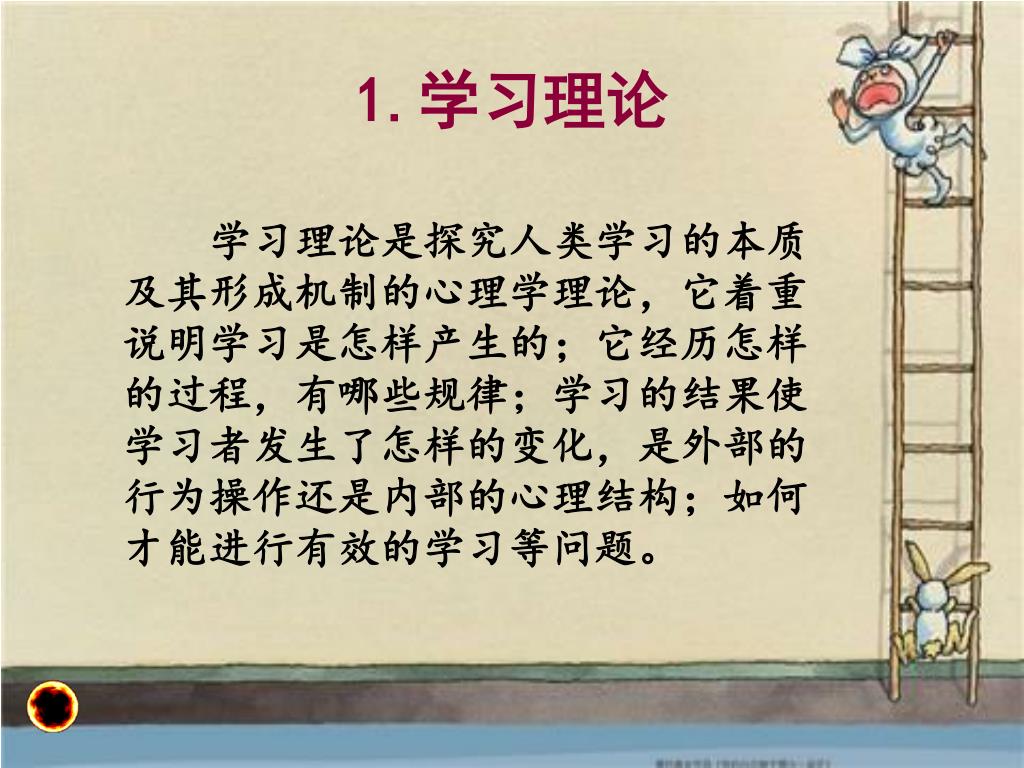 1.学习理论
学习理论是探究人类学习的本质
及其形成机制的心理学理论，它着重
说明学习是怎样产生的；它经历怎样
的过程，有哪些规律；学习的结果使
学习者发生了怎样的变化，是外部的
行为操作还是内部的心理结构；如何
才能进行有效的学习等问题。